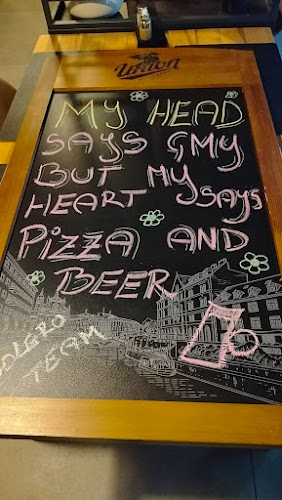 Union
MY HEAD
SAYS GMY
BUT MY
HEART SAYS
PIZZA AND
BEER
BOLERO
TEAM